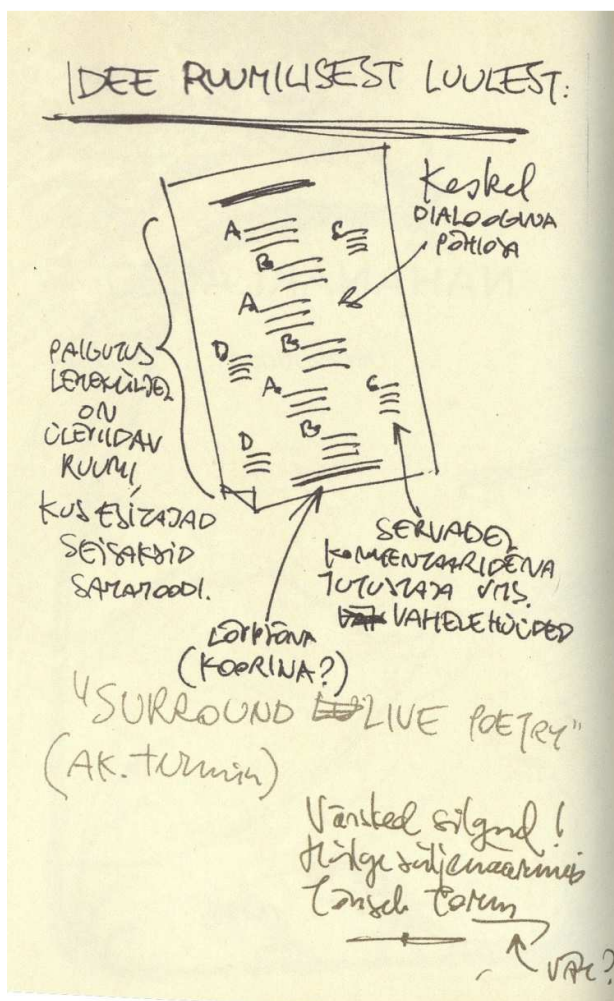 IDEE RUUMILISEST LUULEST:
Keskel
DIALOOGINA
PÕHIOSA
A
C
B
A
B
D
B
A
C
D
B
PAIGUTUS
LEHEKÜLJEL
ON
ÜLEKIDAV
RUUMI,
KUS ESITAJAD
SEISAKSID
SAMAMOODI.
SERVADEL
KOMMENTAARIDENA
TUTVUSTAJA VMS.
VAHELEHÜÜDED
LÕPPSÕNA
(KOORINA?)
"SURROUND LIVE POETRY"
(AK. termin)
Värsked silgud!
VAR?